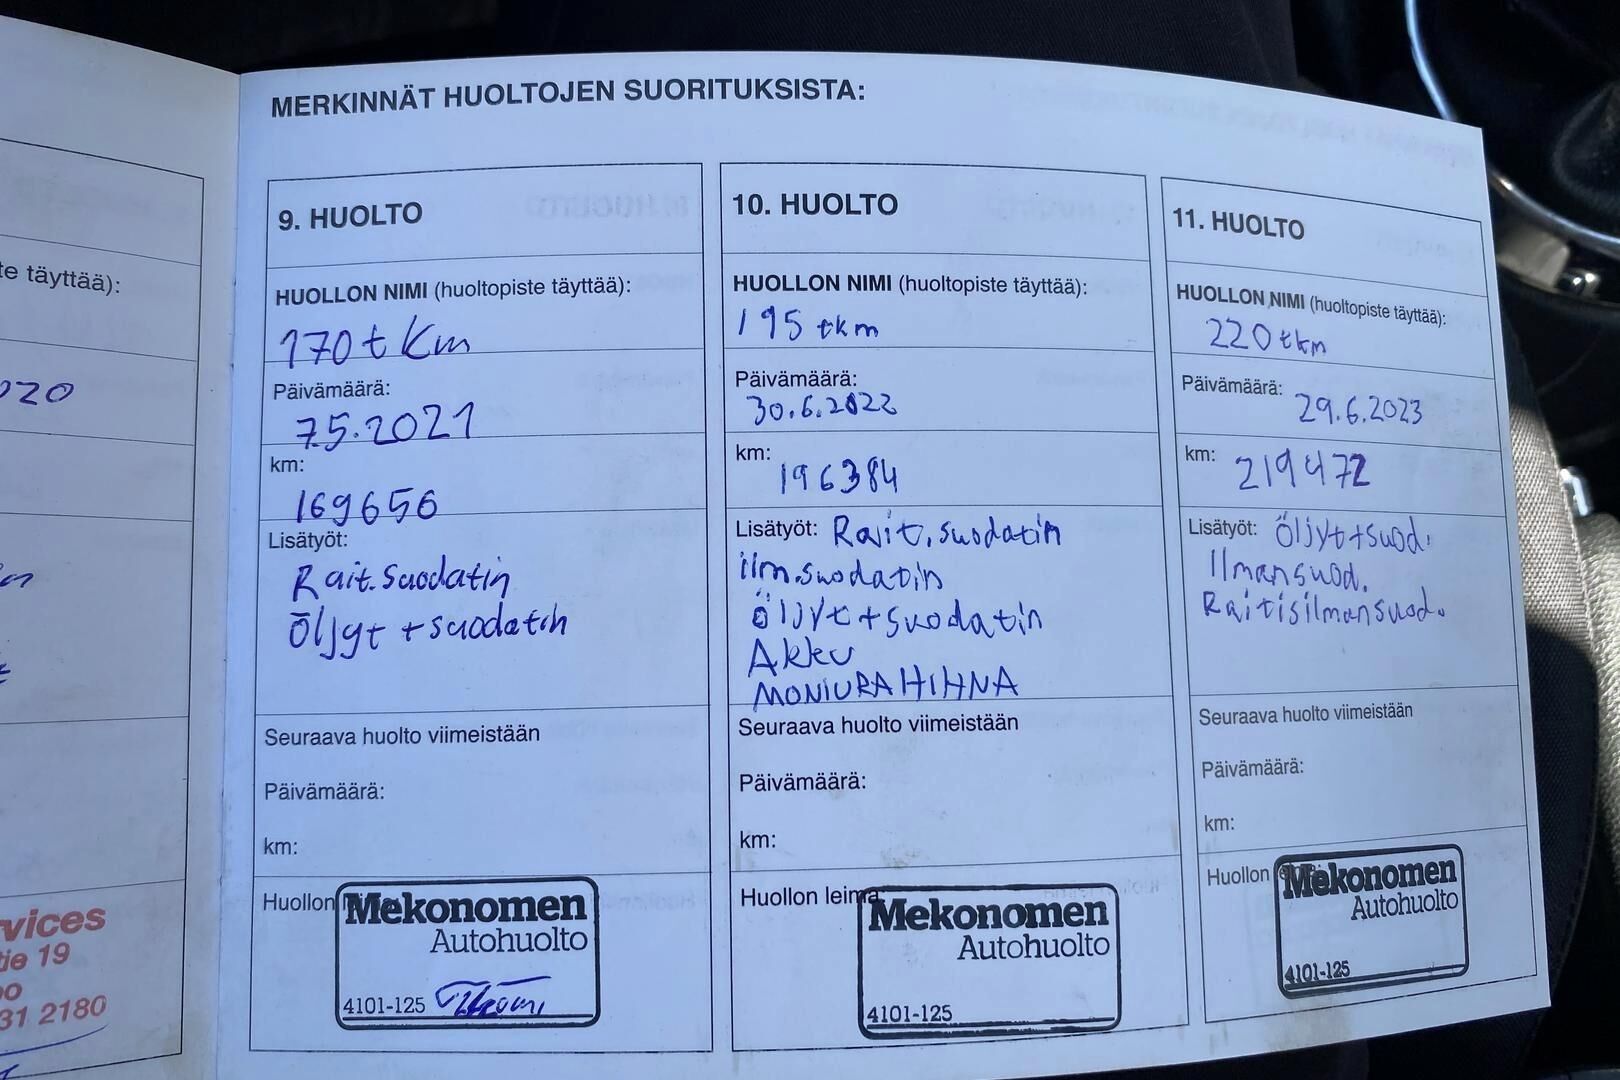 MERKINNÄT HUOLTOJEN SUORITUKSISTA:
te täyttää):
020
vices
tie 19
31 2180
9. HUOLTO
HUOLLON NIMI (huoltopiste täyttää):
170 t Km
Päivämäärä:
7.5.2021
km:
169656
Lisätyöt:
Rait. Suodatin
Öljyt + suodatin
Seuraava huolto viimeistään
Päivämäärä:
km:
Huollon
Mekonomen
Autohuolto
4101-125
10. HUOLTO
HUOLLON NIMI (huoltopiste täyttää):
195 tkm
Päivämäärä:
30.6.2022
km:
196384
Lisätyöt: Rait. suodatin
ilm.suodatin
Öljyt + suodatin
Akku
MONIURAHIHNA
Seuraava huolto viimeistään
Päivämäärä:
km:
Huollon leima
Mekonomen
Autohuolto
4101-125
11. HUOLTO
HUOLLON NIMI (huoltopiste täyttää):
220 tkm
Päivämäärä:
29.6.2023
km: 219472
Lisätyöt: Öljyt+suod.
Ilmansuod.
Raitisilmansuod.
Seuraava huolto viimeistään
Päivämäärä:
km:
Huollon
Mekonomen
Autohuolto
4101-125